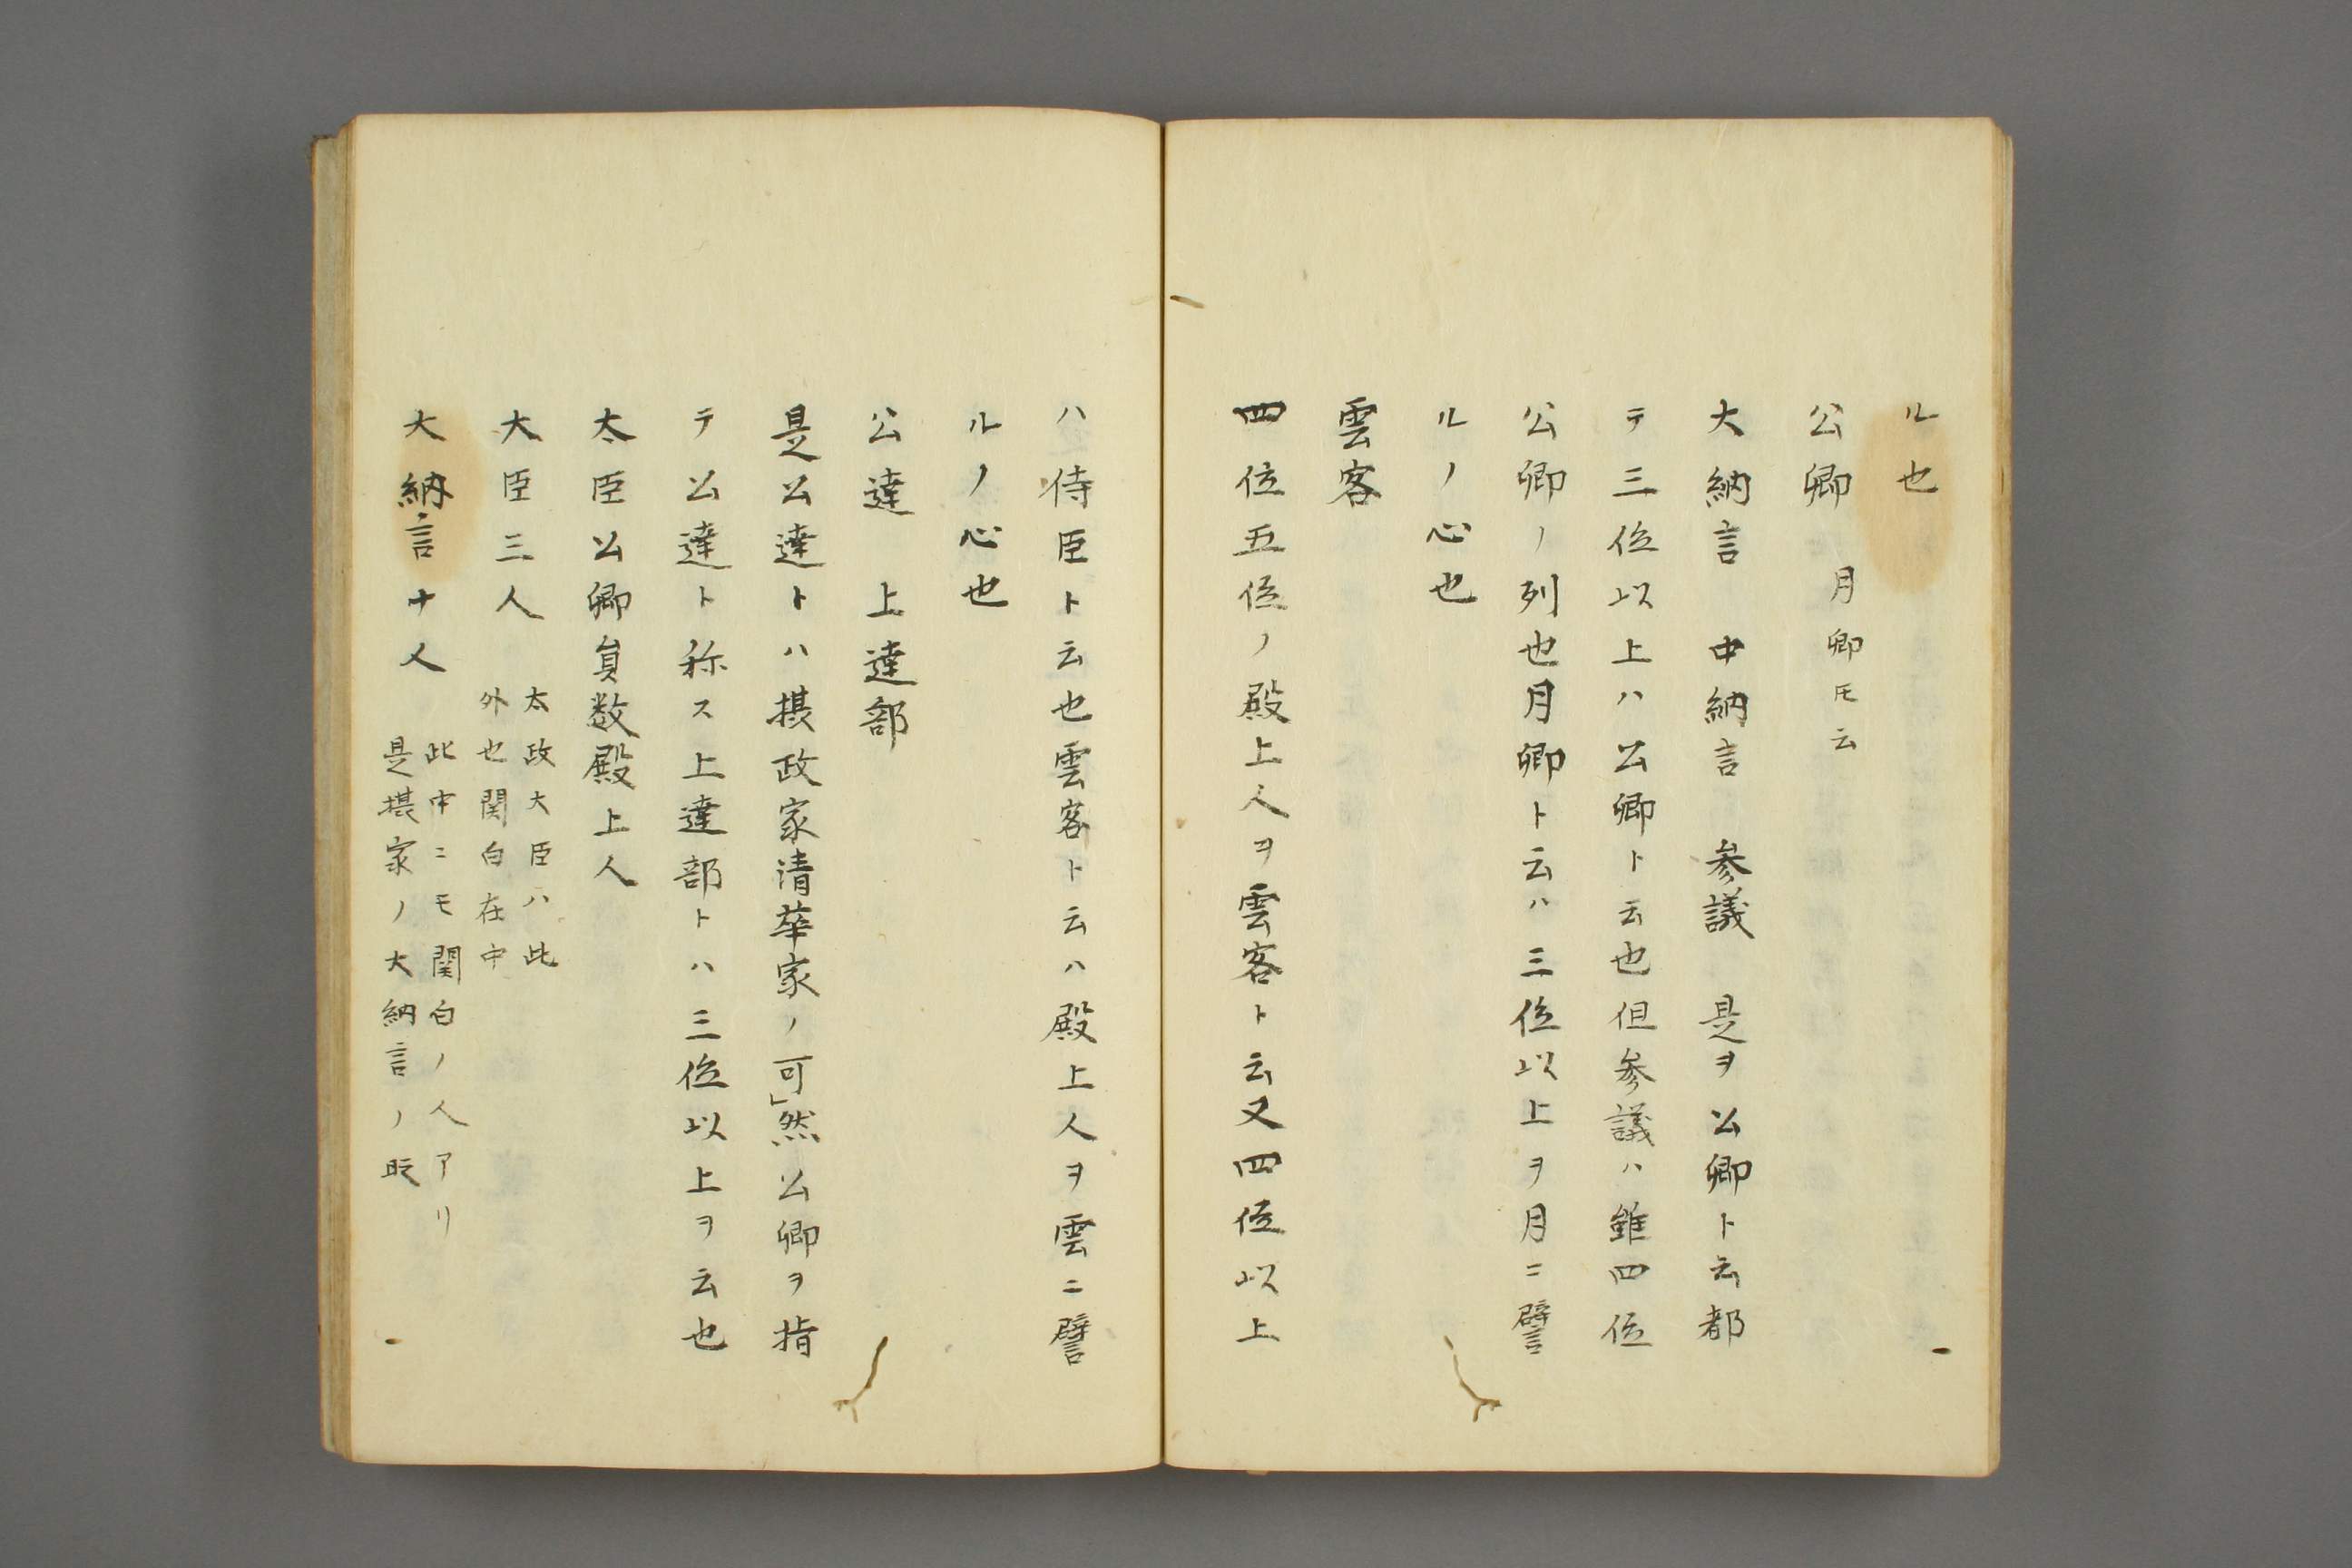 ル也
公卿　月卿モ云
大納言　中納言　参議　是ヲ公卿ト云都
テ三位以上ハ公卿ト云也但参議ハ雖四位
公卿ノ列也月卿ト云ハ三位以上ヲ月ニ譬
ルノ心也
雲客
四位五位ノ殿上人ヲ雲客ト云又四位以上
ハ侍臣ト云也雲客ト云ハ殿上人ヲ雲ニ譬
ルノ心也
公達　上達部
是公達トハ摂政家清華家ノ可然公卿ヲ指
テ公達ト称ス上達部トハ三位以上ヲ云也
太臣公卿員数殿上人
大臣三人
太政大臣ハ此
外也関白在中
大納言十人
此中ニモ関白ノ人アリ
是摂家ノ大納言ノ